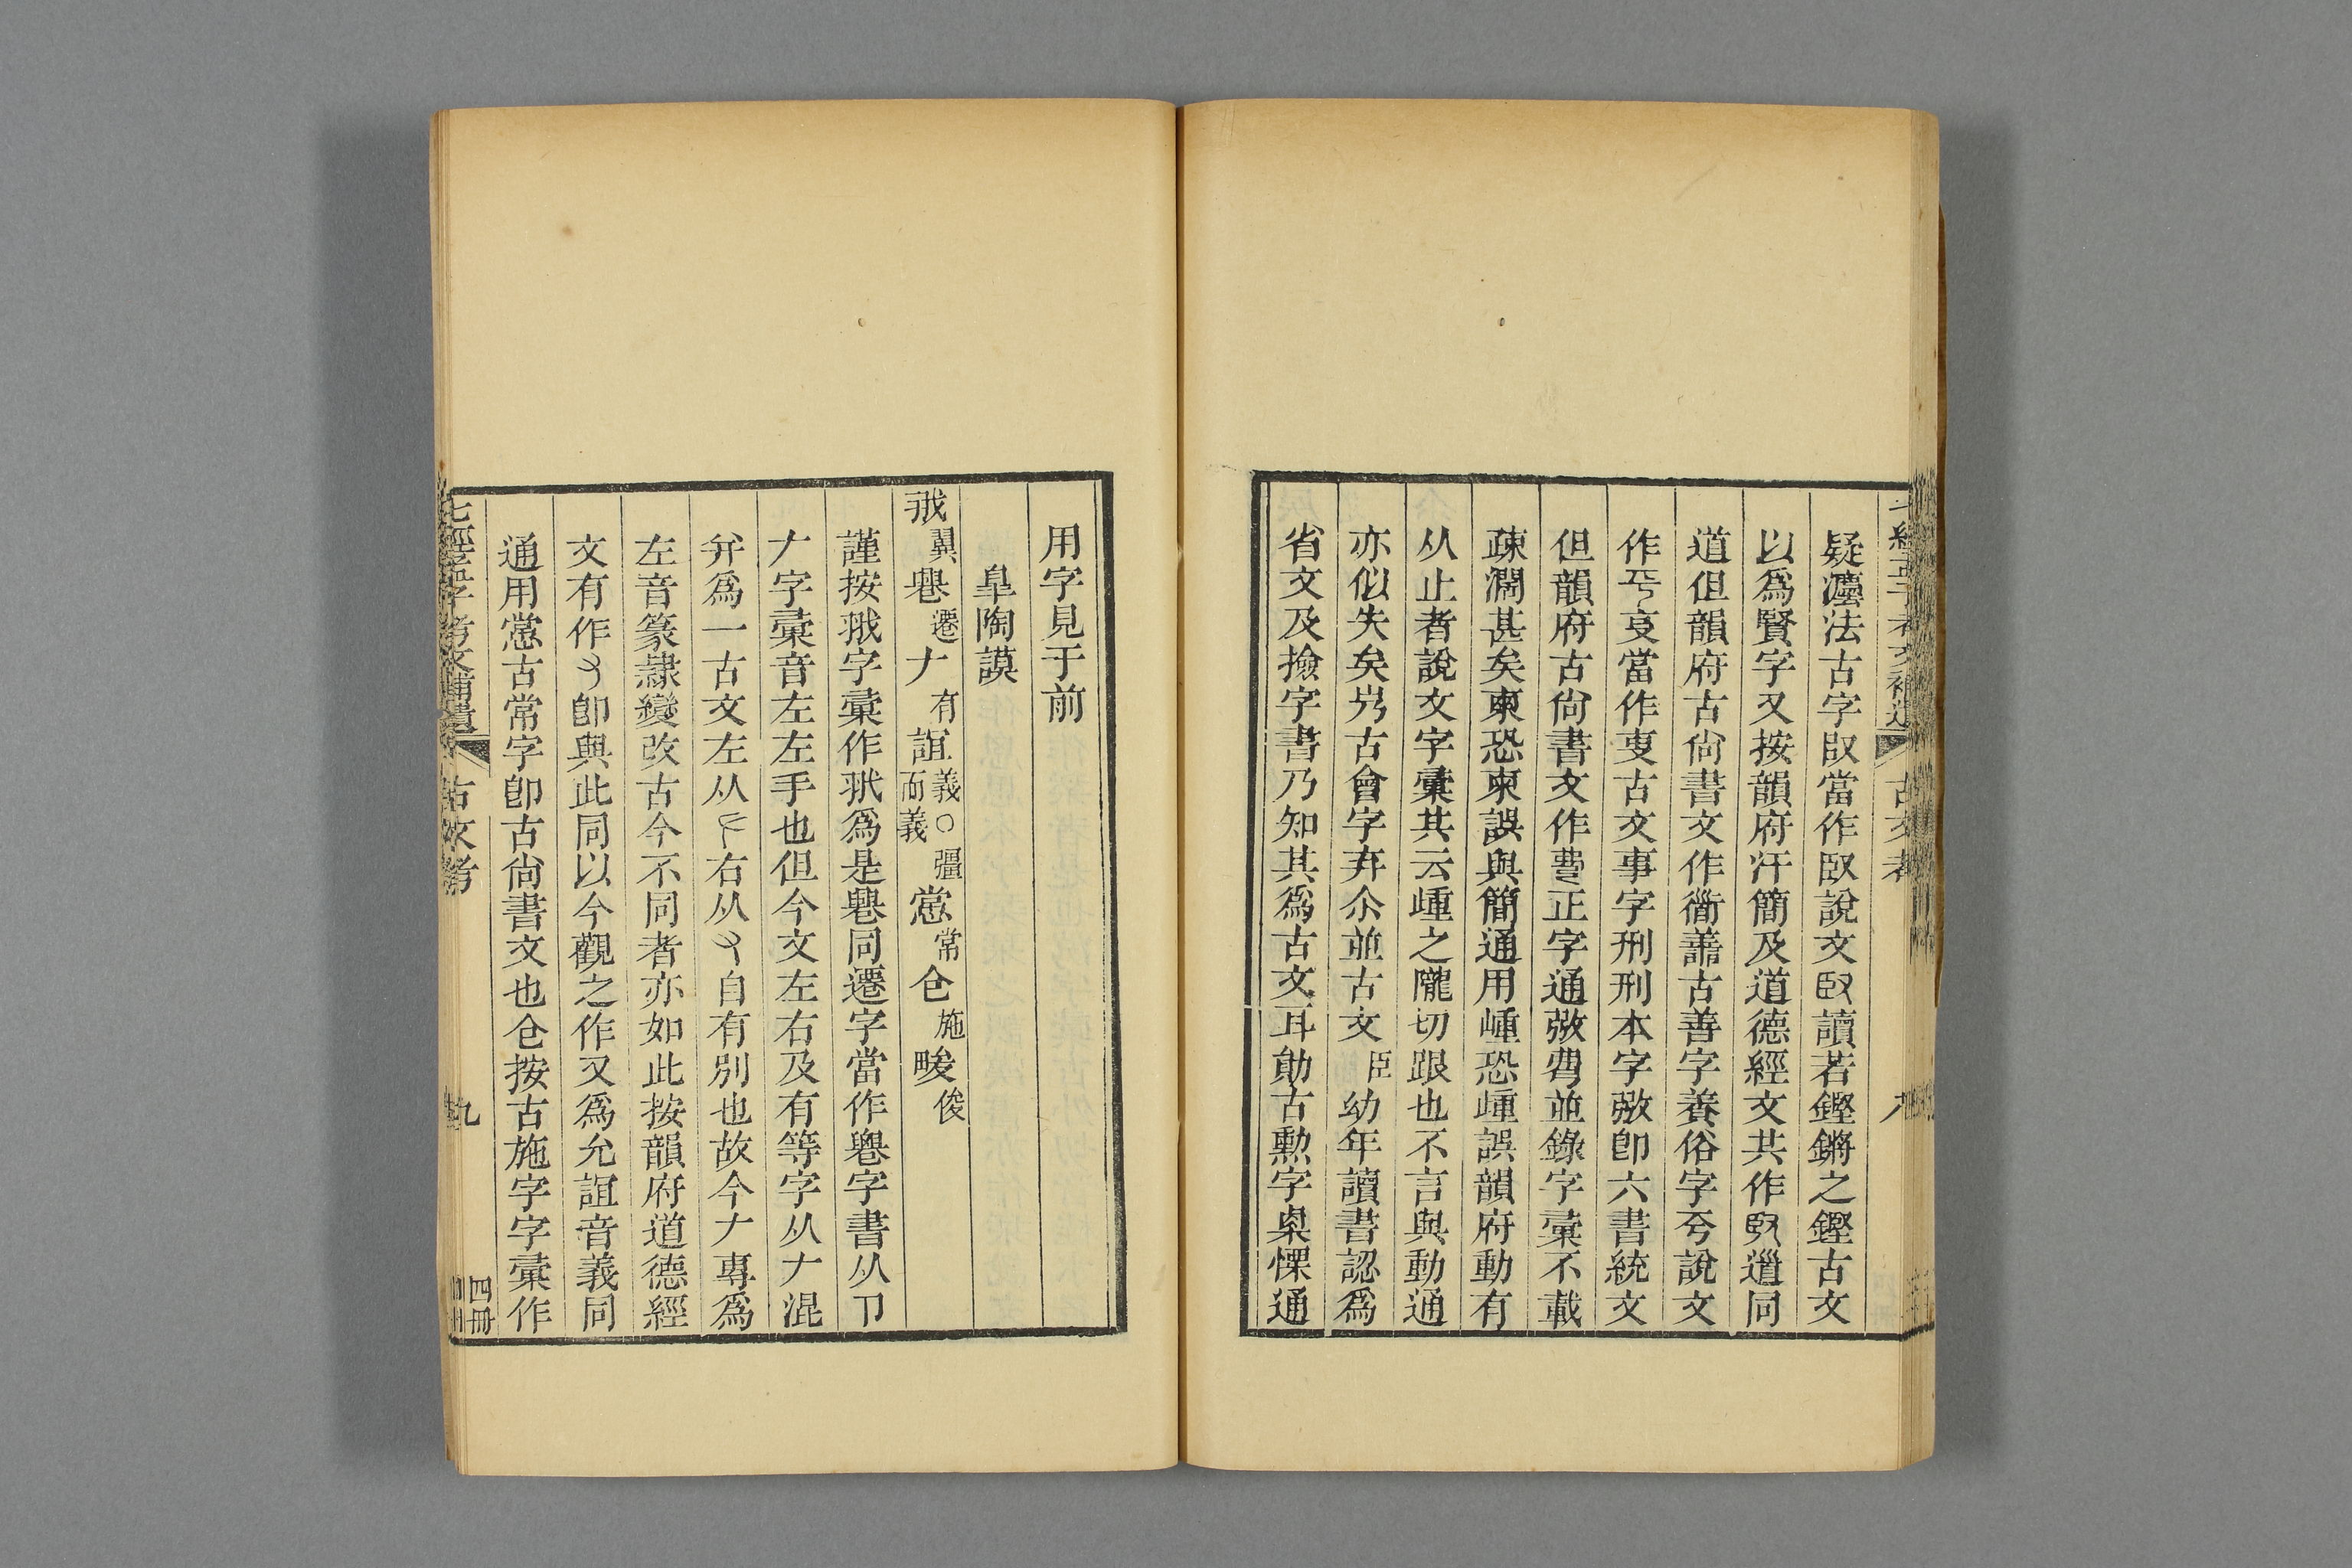 疑灋法古字㕞當作臤說文臤讀若鏗鏘之鏗古文
以爲賢字又按韻府汗簡及道德經文共作臤䢔同
道但韻府古尙書文作衟譱古善字養俗字兮說文
作丂㚅當作叓古文事字刑刑本字㢽卽六書統文
但韻府古尙書文作𧷗正字通㢽𢏺並錄字彙不載
疎濶甚矣柬恐柬誤與簡通用㖓恐𡹔誤韻府動有
从止者說文字彙其云歱之隴切跟也不言與動通
亦似失矣岃古會字弃尒並古文臣幼年讀書認爲
省文及撿字書乃知其爲古文耳勛古勲字㮚慄通
用字見于前
皐陶謨
𢎗翼䙴遷𠂇有誼義○彊而義㦂常仺施畯俊
謹按𢎗字彙作𢎗爲是䙴同遷字當作䙴字書从卩
𠂇字彙音左左手也但今文左右及有等字从𠂇混
幷爲一古文左从右从自有別也故今𠂇專爲
左音篆隷變改古今不同者亦如此按韻府道德經
文有作卽與此同以今觀之作又爲允誼音義同
通用㦂古常字卽古尙書文也仺按古施字字彙作
七經孟子考文補遺 古文考 九 四冊